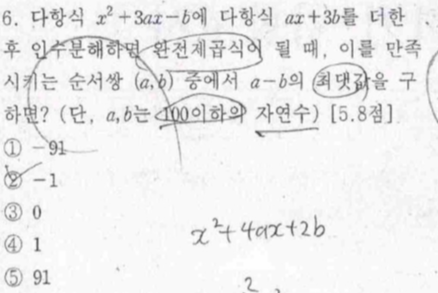 6. 다항식 x²+3ax-b에 다항식 ax+3b를 더한
후 인수분해하면 완전제곱식이 될 때, 이를 만족
시키는 순서쌍 (a,b) 중에서 a-b의 최댓값을 구
하면? (단, a,b는 100이하의 자연수) [5.8점]
① -91
② -1
③ 0
④ 1
⑤ 91
x²+4ax+2b